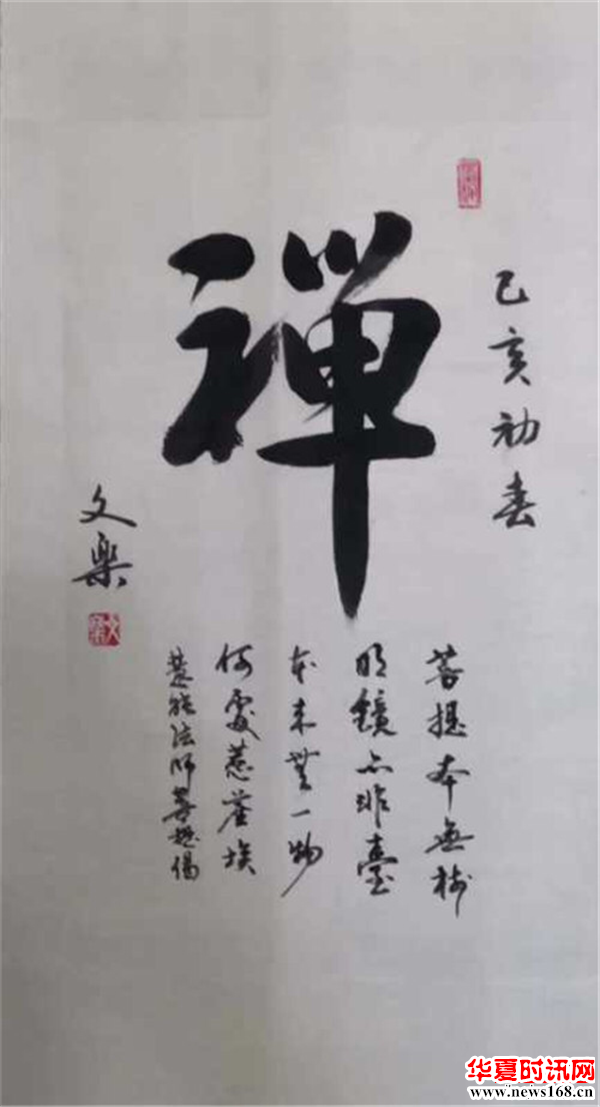 己亥初春
禅
菩提本無樹
明鏡亦非臺
本来無一物
何處惹塵埃
慧能法師菩提偈
文樂
华夏时讯网
www.news168.com.cn